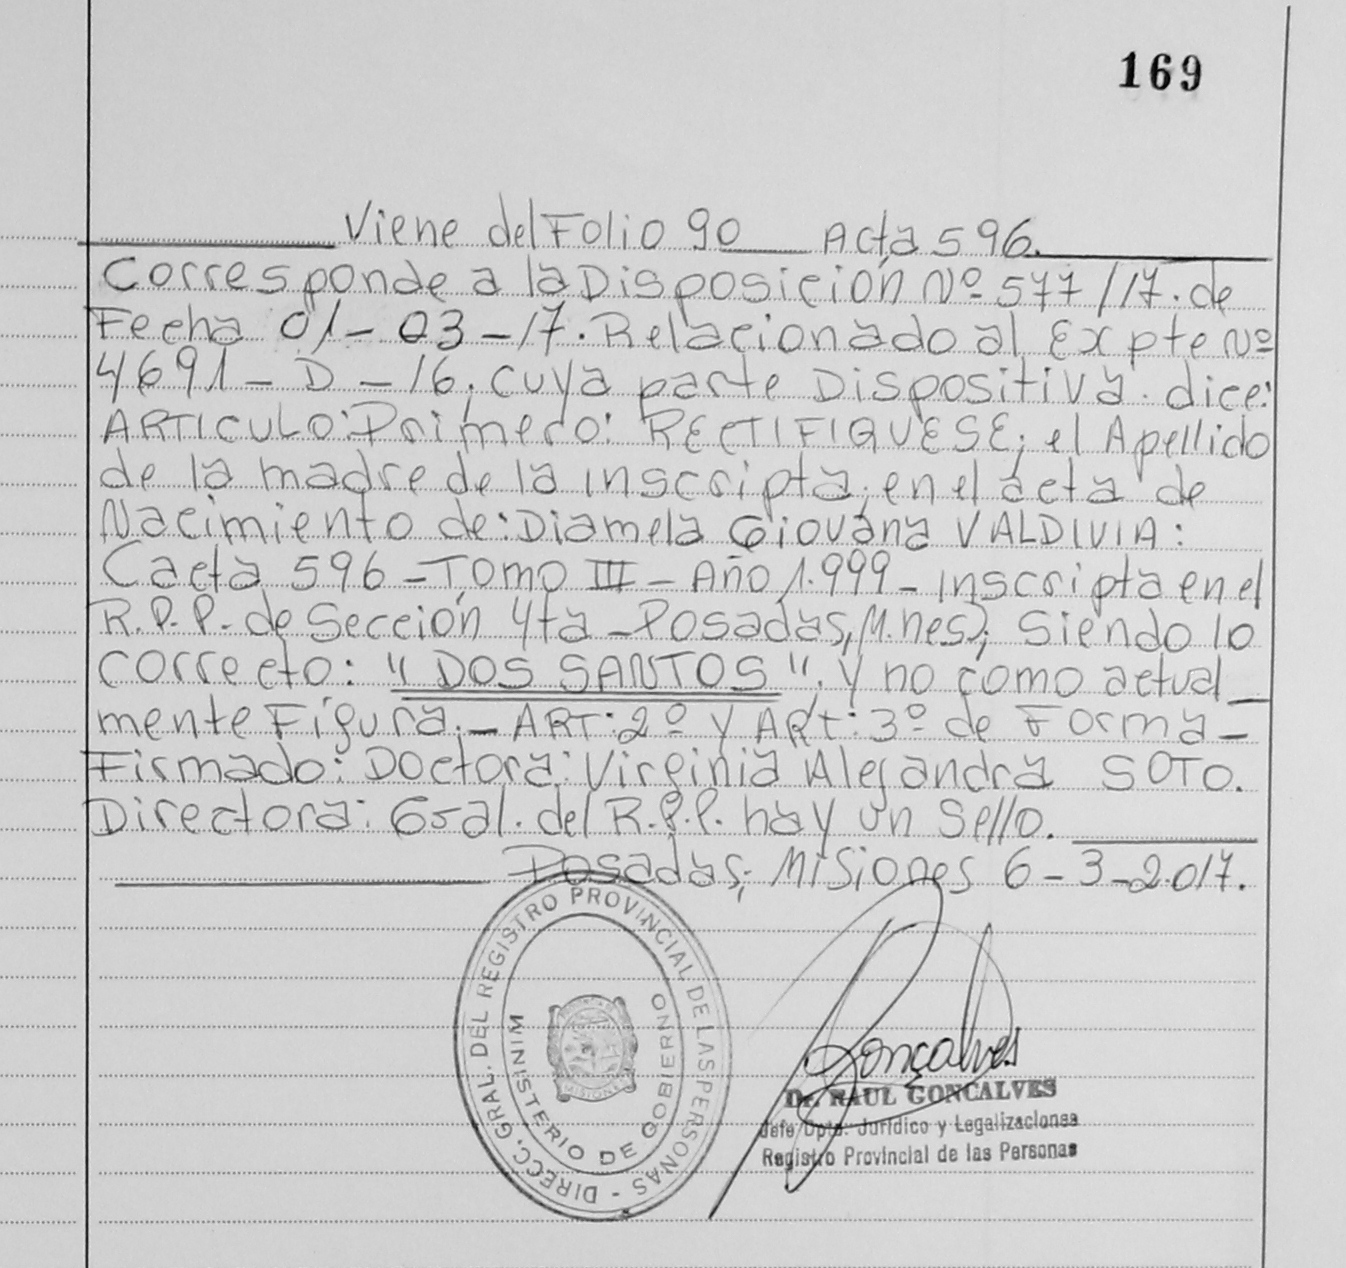 169
Viene del Folio 90 Acta 596.
Corresponde a la Disposición Nº 577/17. de
Fecha 01-03-17. Relacionado al Expte Nº
4691-D-16. cuya parte Dispositiva. dice:
ARTICULO: Primero: RECTIFIQUESE; el Apellido
de la madre de la inscripta, en el acta de
Nacimiento de: Diamela Giovana VALDIVIA:
Cacta 596 - Tomo III - Año 1.999 - Inscripta en el
R.P.P. de Sección 4ta - Posadas, M.nes); Siendo lo
correcto: "DOS SANTOS". y no como actual_
mente Figura. - ART: 2º y ARt: 3º de Forma -
Firmado: Doctora: Virginia Alejandra SOTO.
Directora: Gral. del R.P.P. hay un Sello.
Posadas; Misiones 6-3-2.017.
DIRECC. GRAL. DEL REGISTRO PROVINCIAL DE LAS PERSONAS -
MINISTERIO DE GOBIERNO
MISIONES
Goncalves
Dr. RAUL GONCALVES
Jefe Dpto. Jurídico y Legalizaciones
Registro Provincial de las Personas